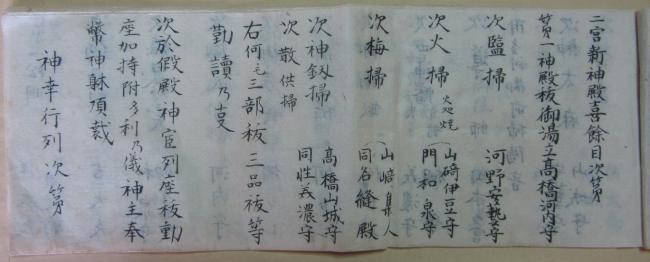 二宮新神殿喜餘目次第
第一神殿祓御湯立高橋河内守
次 臨掃 河野安藝守
次 火掃 火処焼 山﨑伊豆守
門和泉守
次 梅掃 山﨑集人
同名縫殿
次 神釼掃 髙橋山城守
次 散供掃 同性美濃守
右何毛三部祓三品祓等
勤讀乃支
次於假殿神宦列座祓動
座加持附多利乃儀神主奉
幣神躰頂戴
神幸行列次第